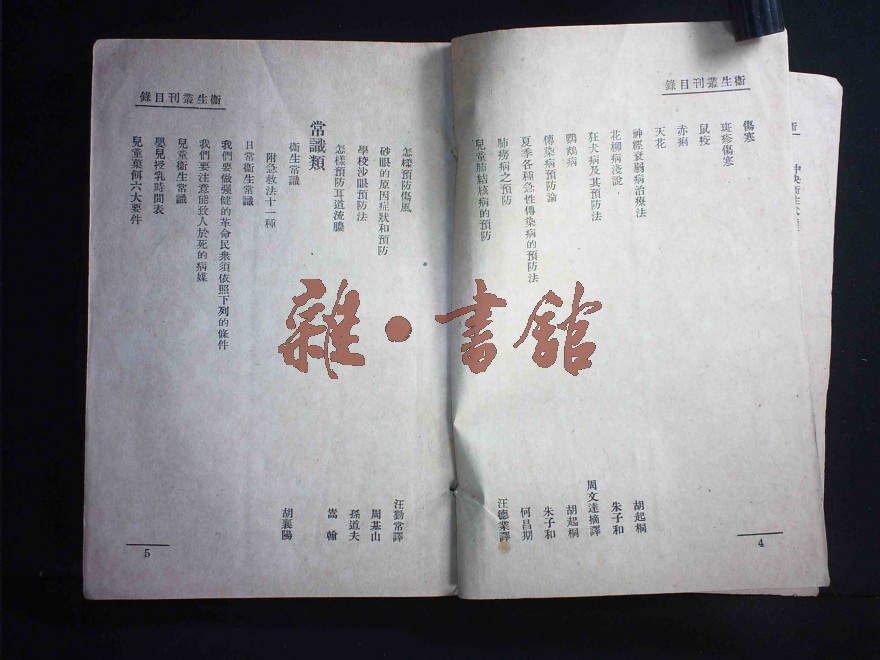 衞生叢刊目錄
傷寒
斑疹傷寒
鼠疫
赤痢
天花
神經衰弱病治療法 胡起桐
花柳病淺說 朱子和
狂犬病及其預防法 周文達摘譯
鸚鵡病 胡起桐
傳染病預防論 朱子和
夏季各種急性傳染病的預防法 何昌期
肺癆病之預防
兒童肺結核病的預防 汪德業譯
4
衞生叢刊目錄
怎樣預防傷風 汪勤常譯
砂眼的原因症狀和預防 周基山
學校沙眼預防法 孫道夫
怎樣預防耳道流膿 嵩翰
常識類
衞生常識 胡襄陽
附急救法十一種
日常衞生常識
我們要做强健的革命民衆須依照下列的條件
我們要注意能致人於死的病媒
兒童衞生常識
嬰兒授乳時間表
兒童菓餌六大要件
5
雜·書館